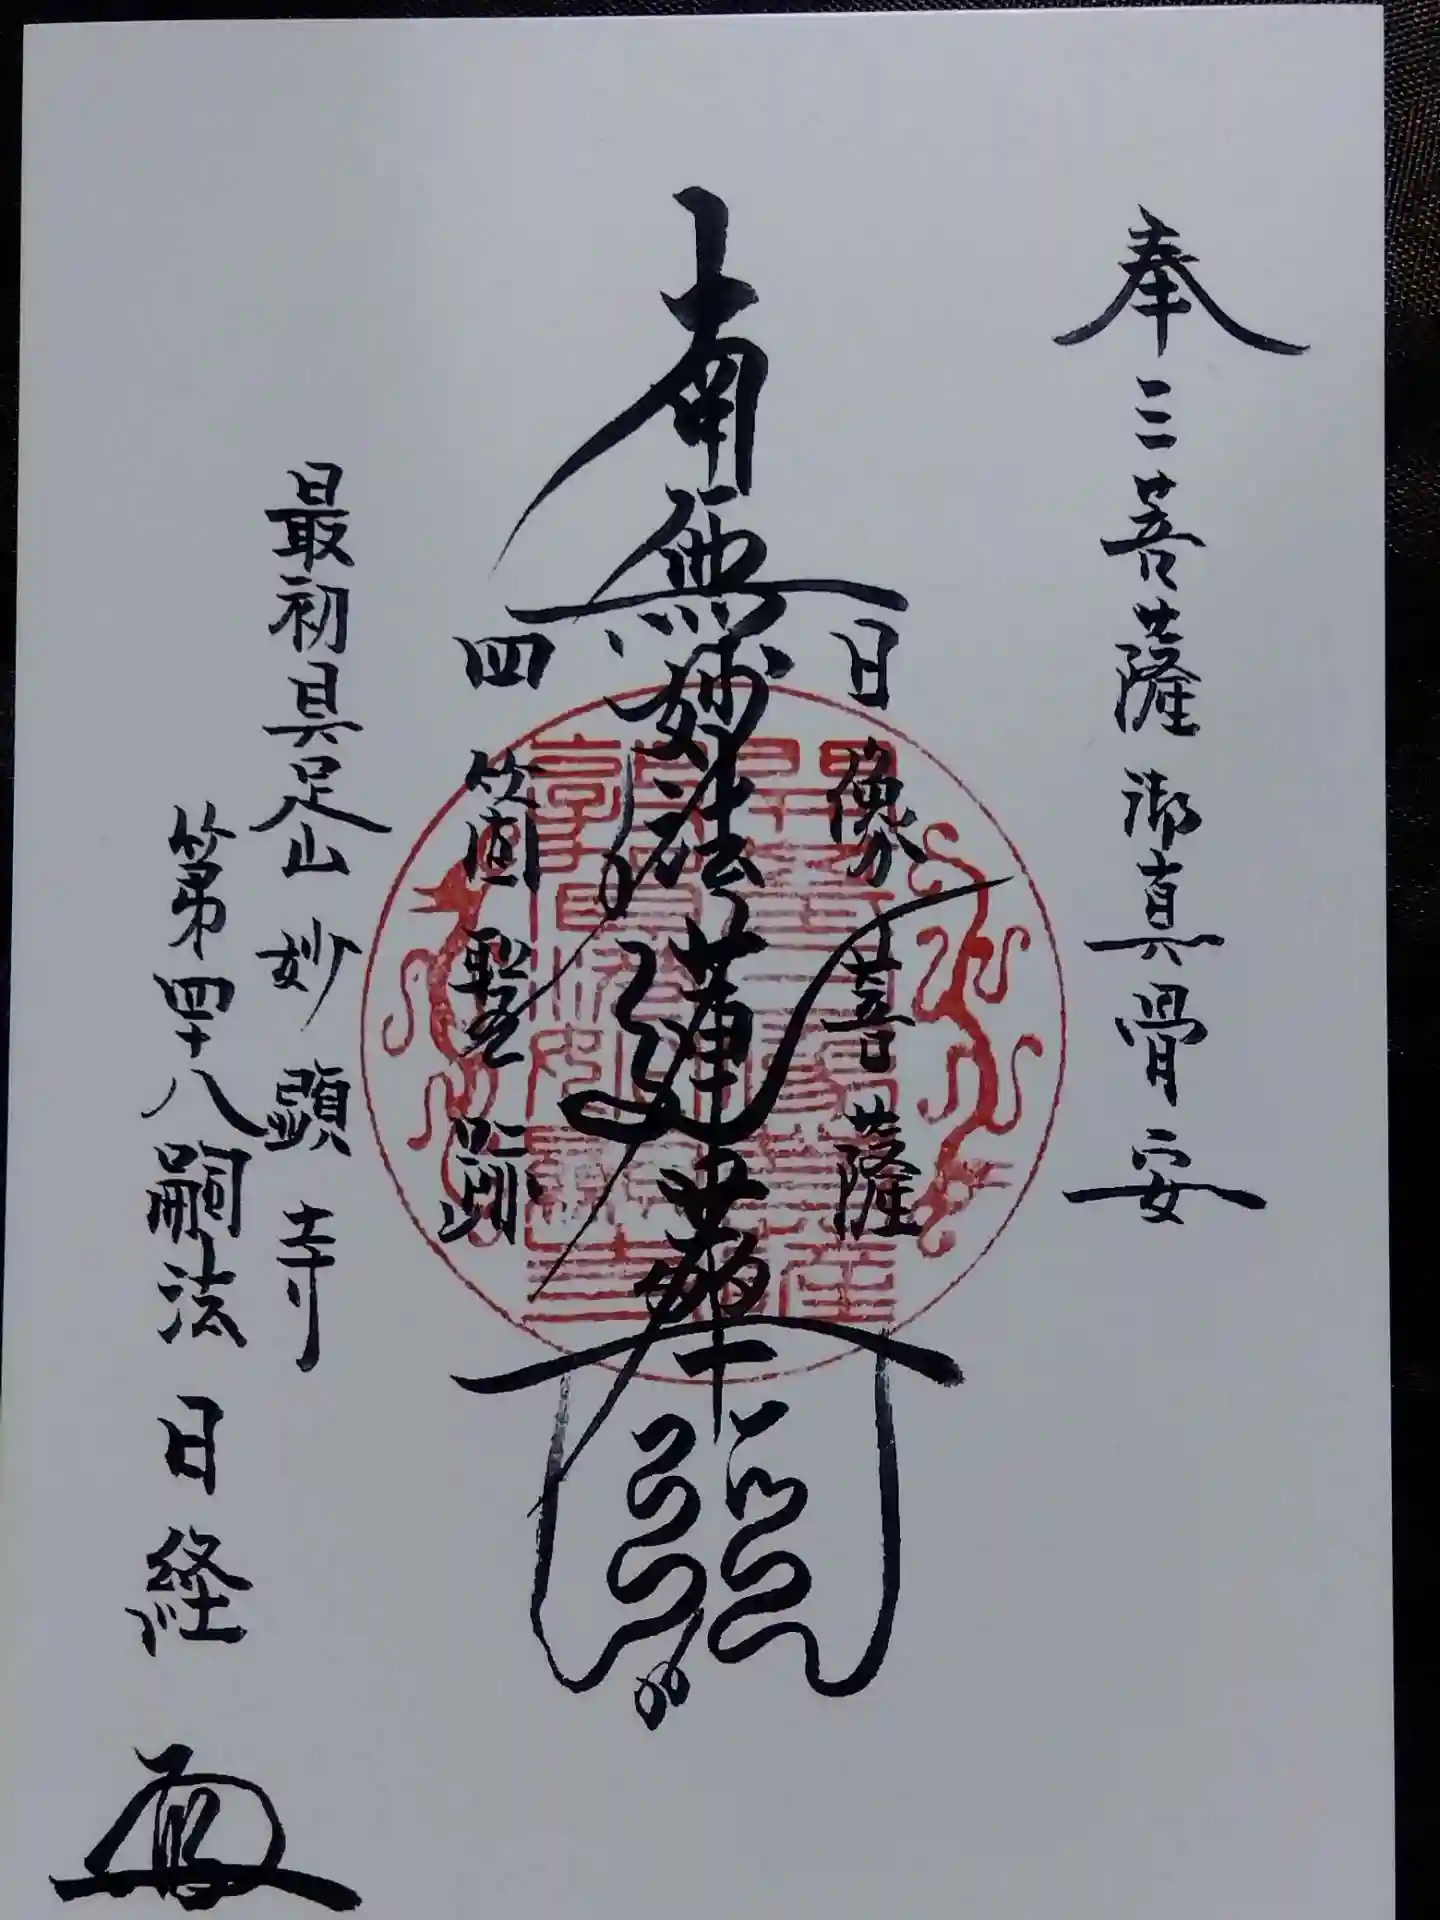 奉 三菩薩御真骨安
日像菩薩
南無妙法蓮華経
四箇聖跡
最初具足山 妙顕寺
第四十八嗣法 日経